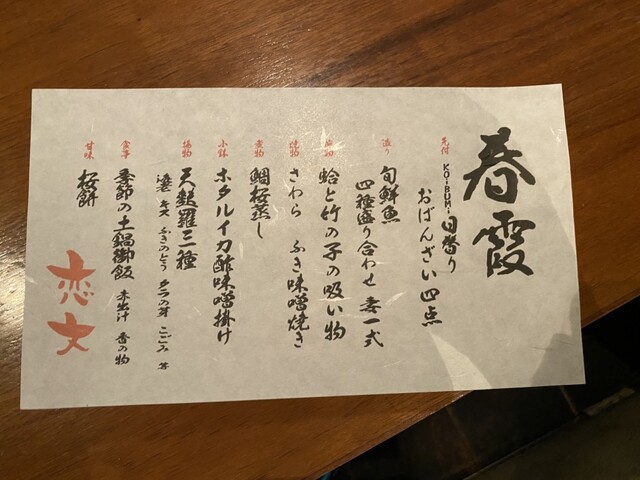 春霞
先付
KOIBUMI日替り
おばんざい四点
造り
旬鮮魚
四種盛り合わせ 妻一式
椀物
蛤と竹の子の吸い物
焼物
さわら ふき味噌焼き
煮物
鯛桜蒸し
小鉢
ホタルイカ酢味噌掛け
揚物
天麩羅三種
キス ふきのとう タラの芽 こごみ
食事
季節の土鍋御飯 赤出汁 香の物
甘味
桜餅
恋文